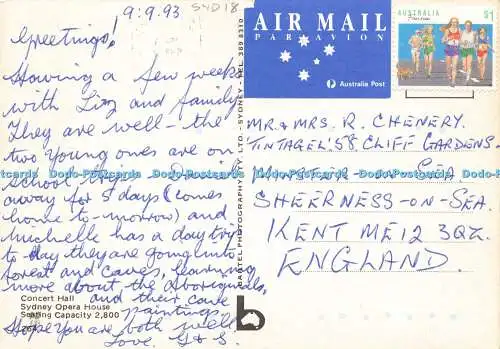 9.9.93
SYD 18
Greetings!
Having a few weeks
with Liz and family
They are well - the
two young ones are on
school trips.
away for 5 days (comes
home to-morrow) and
Michelle has a day trip
to day they are going into
forest and caves, learning
more about the Aboriginals,
and their cave
paintings
Hope you are both well
Love. G & S.
Concert Hall
Sydney Opera House
Seating Capacity 2,800
264
BARTEL PHOTOGRAPHY PTY LTD. - SYDNEY - 369 8310
AIR MAIL
PAR AVION
Australia Post
AUSTRALIA
$1
MR. & MRS. R. CHENERY.
TINTAGEL' 58, CLIFF GARDENS.
ON SEA
SHEERNESS-ON-SEA.
KENT ME12 3QZ.
ENGLAND.
Dodo-Postcards Dodo-Postcards Dodo-Postcards Dodo-Postcards